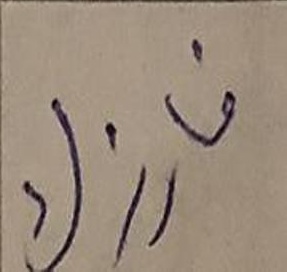 فرزاد